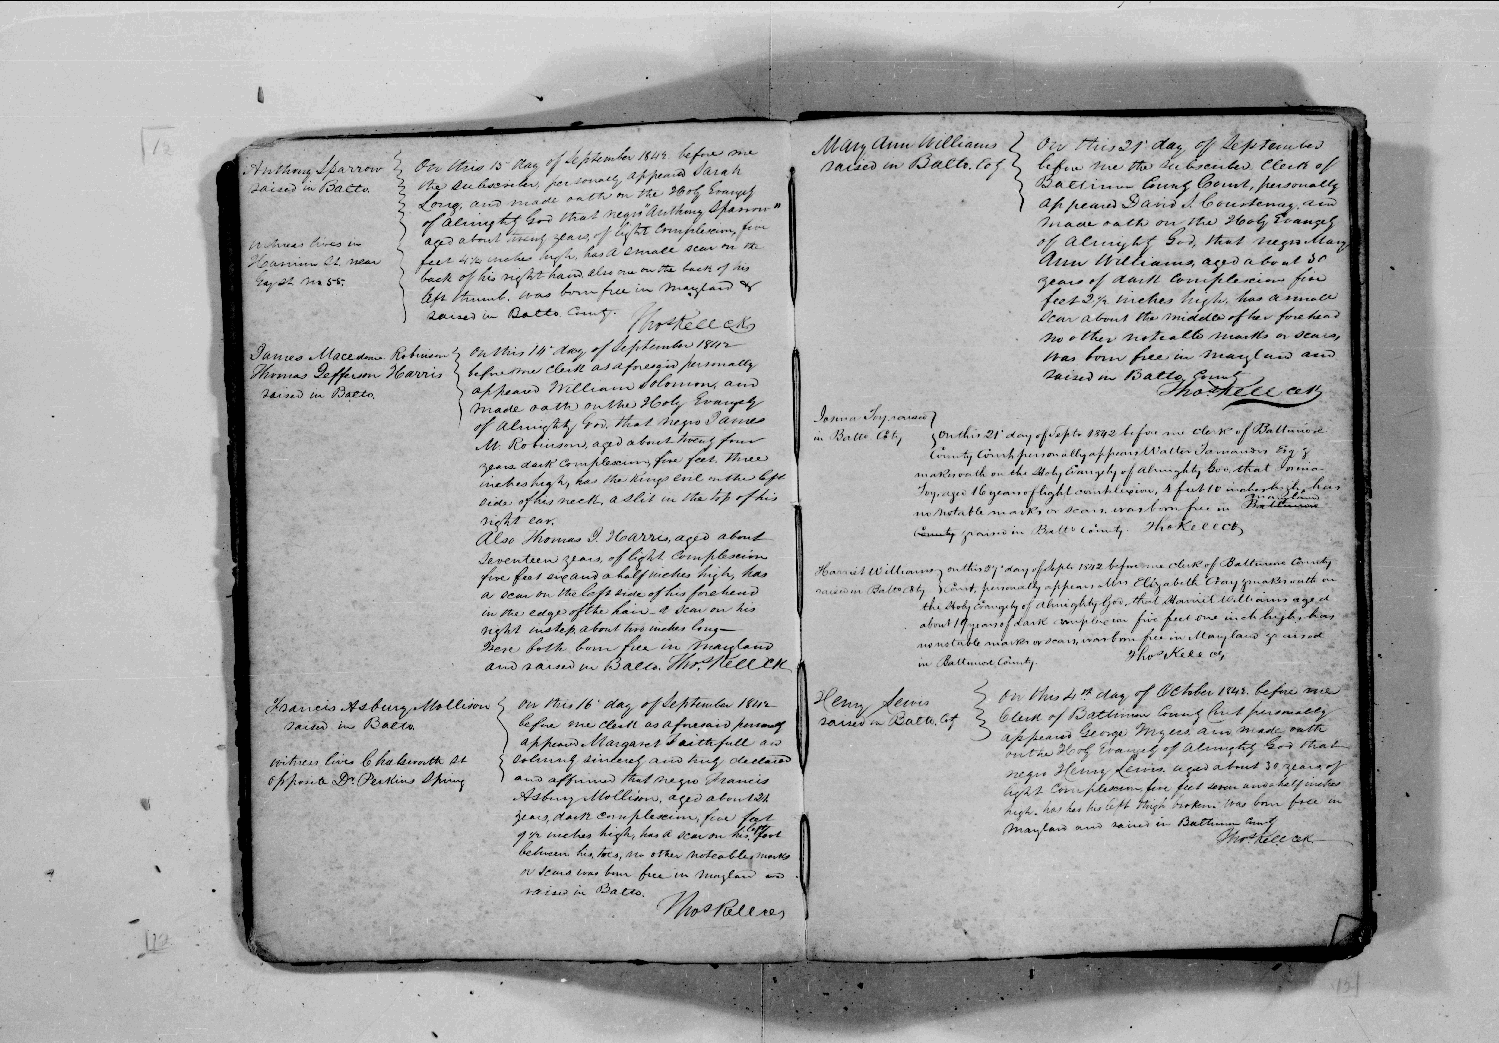 Anthony Sparrow
raised in Balto.
witness lives in
Harrison St. near
Gay St. No 58.
On this 15 day of September 1842 before me
the subscriber, personally appeared Sarah
Long, and made oath on the Holy Evangely
of Almighty God that negro "Anthony Sparrow"
aged about twenty years, of light complexion, five
feet 4½ inches high, has a small scar on the
back of his right hand also one on the back of his
left thumb. was born free in Maryland &
raised in Balto. County.
Thos Kell Clk
James Macedon Robinson
Thomas Jefferson Harris
raised in Balto.
On this 14 day of September 1842
before me clerk as aforesaid personally
appeared William Solomon, and
made oath on the Holy Evangely
of Almighty God, that negro James
M. Robinson, aged about twenty four
years, dark complexion, five feet three
inches high, has the kings evil on the left
side of his neck, a slit in the top of his
right ear.
Also Thomas J. Harris, aged about
seventeen years, of light complexion
five feet six and a half inches high, has
a scar on the left side of his forehead
in the edge of the hair a scar on his
right instep about two inches long—
were both born free in Maryland
and raised in Balto. Thos Kell Clk
Francis Asbury Mollison
raised in Balto.
witness lives Chatsworth St
opposite Dr. Perkins Spring
On this 16 day of September 1842
before me clerk as aforesaid personally
appeared Margaret Faithfull and
solemnly sincerely and truly declared
and affirmed that negro Francis
Asbury Mollison, aged about 21
years, dark complexion, five feet
9½ inches high, has a scar on his left foot
between his toes, no other noteable marks
or scars was born free in Maryland and
raised in Balto.
Thos Kell Clk
Mary Ann Williams
raised in Balto. Cty
On this 21 day of September
before me the subscriber Clerk of
Baltimore County Court, personally
appeared David S. Courtenay, and
made oath on the Holy Evangely
of Almighty God, that negro Mary
Ann Williams, aged about 30
years of dark complexion five
feet 2½ inches high, has a small
scar about the middle of her forehead
no other noteable marks or scars,
was born free in Maryland and
raised in Balto County
Thos Kell Clk
Toy, raised
in Balto Cty
On this 21 day of Septr 1842 before me clerk of Baltimore
County Court personally appears Walter Farnandis Esq &
makes oath on the Holy Evangely of Almighty God, that
Toy, aged 16 years of light complexion, 4 feet 10 inches high, has
no notable marks or scars, was born free in Maryland Baltimore
County & raised in Balto County. Tho Kell Clk
Harriet Williams
raised in Balto Cty
on this 27 day of Septr 1842 before me clerk of Baltimore County
Court, personally appears Mrs Elizabeth Gray & makes oath on
the Holy Evangely of Almighty God, that Harriet Williams aged
about 19 years of dark complexion five feet one inch high, has
no notable marks or scars, was born free in Maryland & raised
in Baltimore County. Thos Kell Clk
Henry Lewis
raised in Balto. Cty
On this 4th day of October 1842. before me
Clerk of Baltimore County Court personally
appeared George Myers, and made oath
on the Holy Evangely of Almighty God that
negro Henry Lewis, aged about 30 years of
light complexion, five feet seven and half inches
high. has had his left thigh broken was born free in
Maryland and raised in Baltimore County
Thos Kell Clk